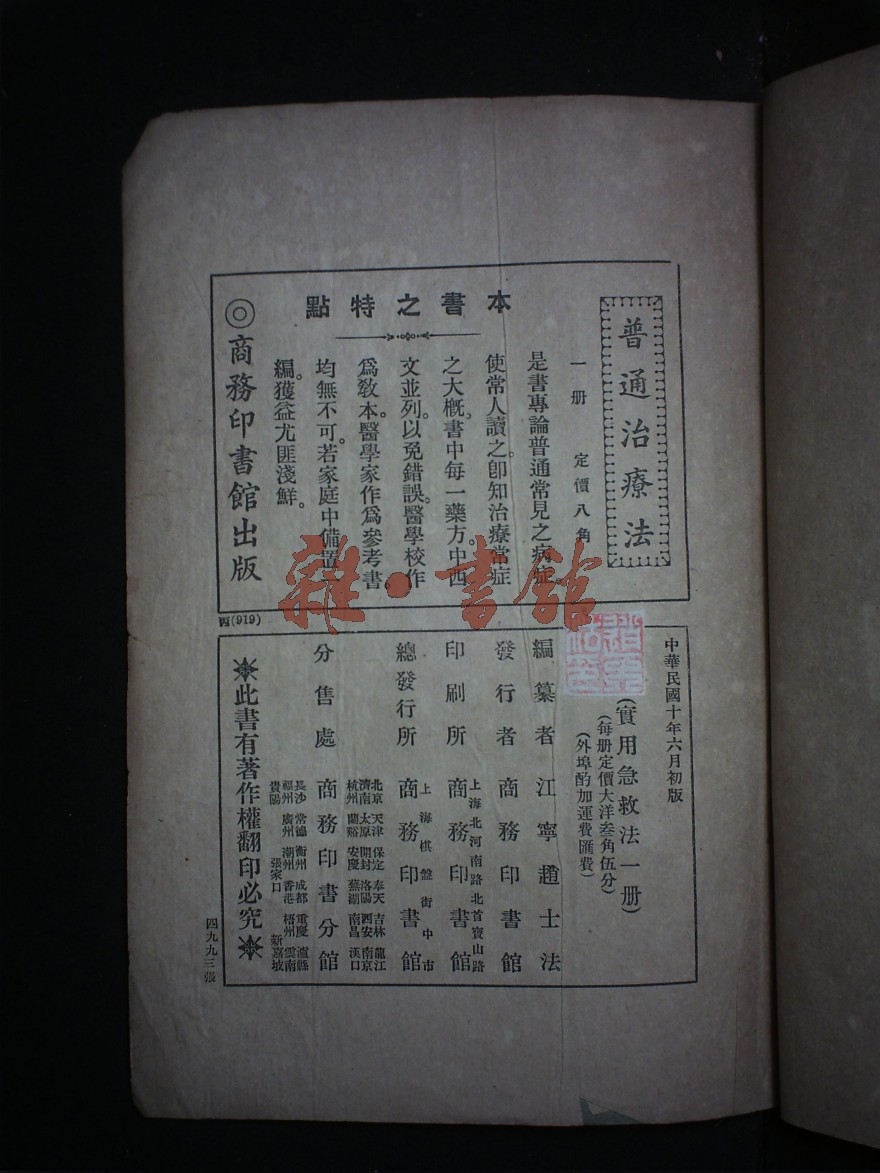 普通治療法
一册 定價八角
本書之特點
是書專論普通常見之病症。
使常人讀之。卽知治療常症
之大槪。書中每一藥方。中西
文並列。以免錯誤。醫學校作
爲敎本。醫學家作爲參考書。
均無不可。若家庭中備置一
編。獲益尤匪淺鮮。
◎商務印書館出版
四(919)
中華民國十年六月初版
(實用急救法一册)
(每册定價大洋叁角伍分)
(外埠酌加運費匯費)
編纂者 江寧趙士法
發行者 商務印書館
印刷所 上海北河南路北首寶山路 商務印書館
總發行所 上海棋盤街中市 商務印書館
分售處 商務印書分館
北京 天津 保定 奉天 吉林 龍江
濟南 太原 開封 洛陽 西安 南京
杭州 蘭谿 安慶 蕪湖 南昌 漢口
長沙 常德 衡州 成都 重慶 瀘縣
福州 廣州 潮州 香港 梧州 雲南
貴陽 張家口 新嘉坡
此書有著作權翻印必究
四九九三張
雜·書館